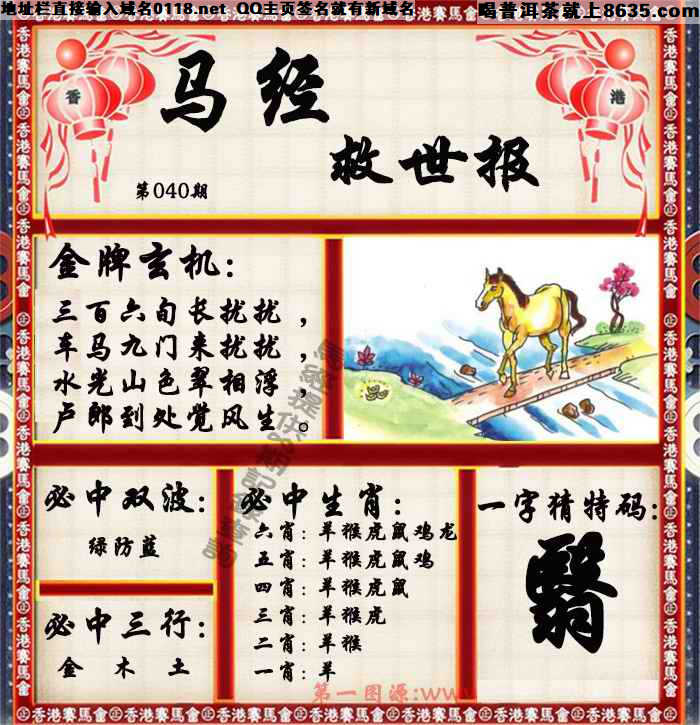 地址栏直接输入域名0118.net QQ主页签名就有新域名
喝普洱茶就上8635.com
香港賽馬會
香
港
马经
救世报
第040期
金牌玄机：
三百六旬长扰扰，
车马九门来扰扰，
水光山色翠相浮，
卢郎到处觉风生。
必中双波：
绿防蓝
必中三行：
金 木 土
必中生肖：
六肖：羊猴虎鼠鸡龙
五肖：羊猴虎鼠鸡
四肖：羊猴虎鼠
三肖：羊猴虎
二肖：羊猴
一肖：羊
一字猜特码：
翳
第一图源:www